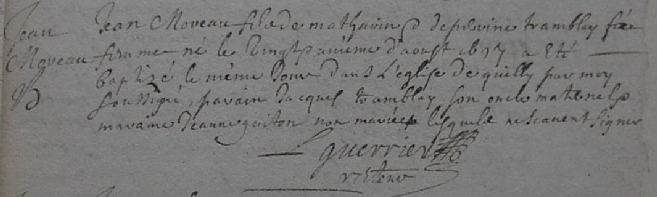 Jean Jean Moveau fils de mathurin & de perinne tramblay sa
Moveau femme né le vingt d'aoust 16 a eté
baptizé le même Jour dans L'eglise de quilly par moy
soussigné, parain Jacques tramblay son oncle maternel &
maraine Jeanne guiton non mariée lesquels ne scavent signer
guerrier